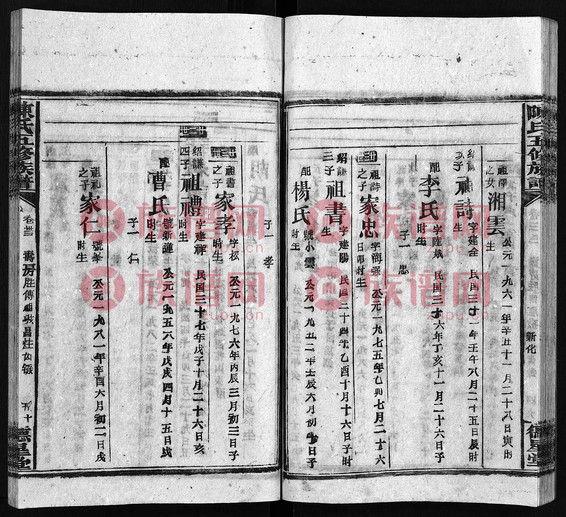 陳氏五修族譜
新化
德星堂
祖
之女
湘雲
公元一九六一年辛丑十一月二十八日寅時生
三子
祖詩
字建金
民國三十一年壬午八月二十五日辰時生
配
李氏
字
民國三十六年丁亥十一月十三日子時生
子一
忠
祖詩
之子
家忠
字海
公元一九七五年乙卯七月二十六日卯時生
紹
三子
祖書
字建陽
民國二十四年乙酉十月十七日子時生
配
楊氏
號小雲
公元一九五二年壬辰三月初三日子時生
子一
孝
祖書
之子
家孝
字松
公元一九七六年丙辰三月初三日子時生
紹
四子
祖禮
字建
民國三十七年戊子十月二十六日亥時生
配
曹氏
號新蓮
公元一九五八年戊戌四月十五日戌時生
子一
仁
祖禮
之子
家仁
號
公元一九八一年辛酉六月初二日戌時生
陳氏五修族譜
卷
房
五十
德星堂
族谱网
族谱网
族谱网
族谱网
族谱网
族谱网